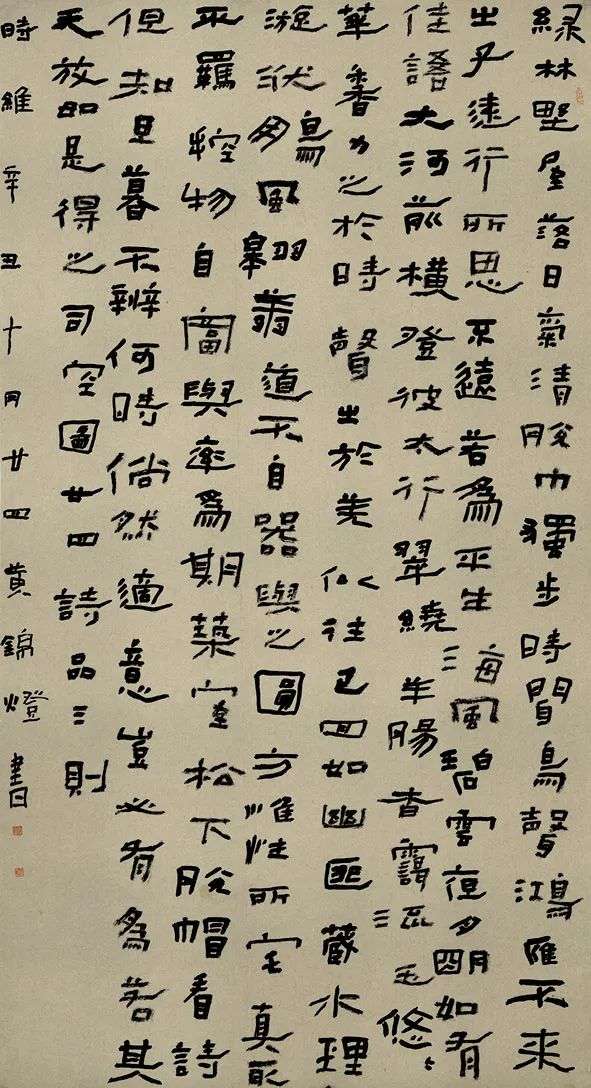 綠林埜屋落日氣清脫巾獨步時聞鳥聲鴻雁不來
之子遠行所思不遠若為平生海風碧雲夜月明如有
佳語大河前橫登彼太行翠繞羊腸杳靄流玉悠悠
華香力之於時聲出於羌似往已回如幽匪藏水理
漩洑鵬風翱翔道不自器與之圓方惟性所宅真取
不羈控物自富與率為期築室松下脫帽看詩
但知旦暮不辨何時倘然適意豈必有為若其
天放如是得之司空圖廿四詩品三則
時維辛丑十月廿四黃錦燈書